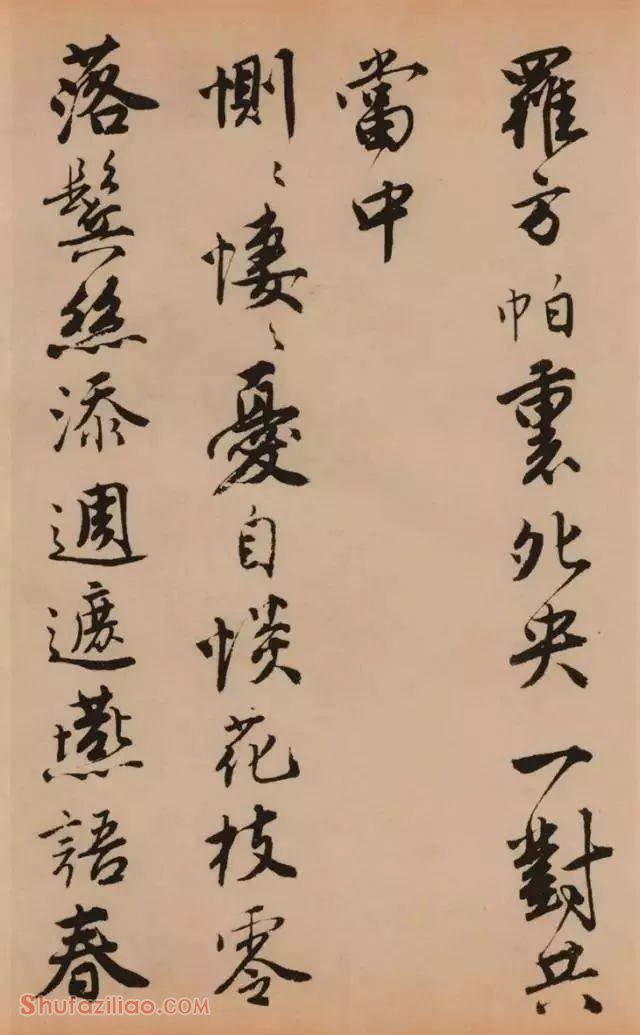 羅方帕裹夗央一對共
當中
惻〻悽〻憂自惔花枝零
落鬢絲添週遮燕語春
Shufaziliao.com